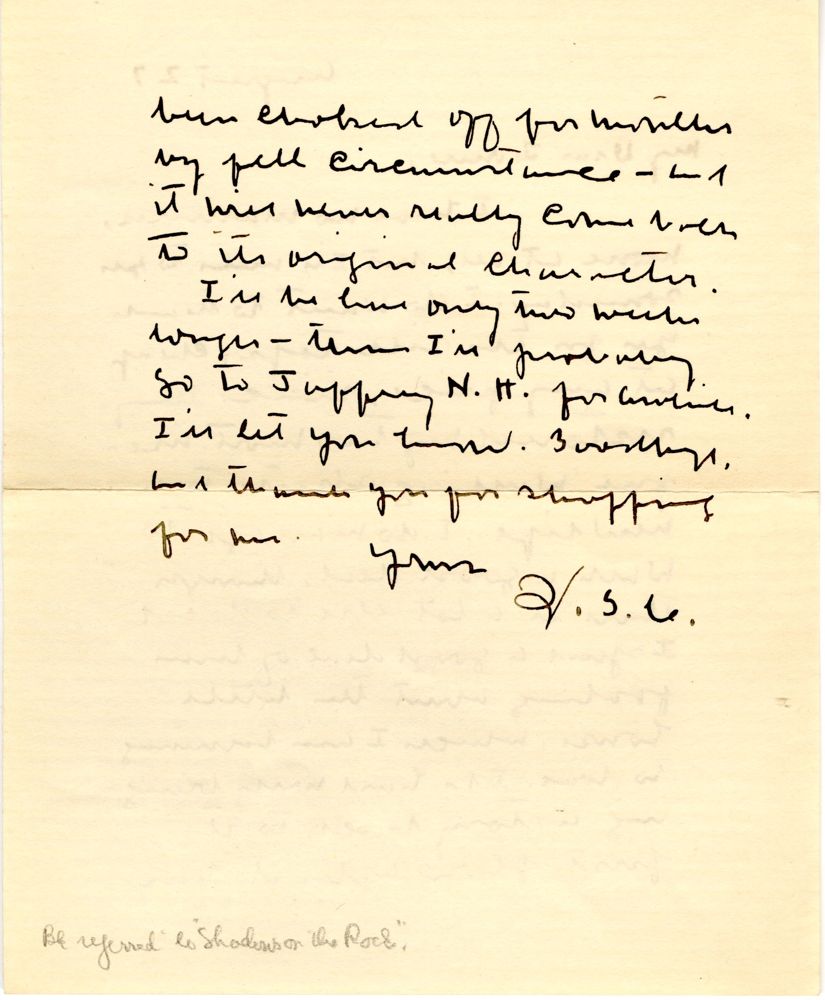 been off for months
by fell circumstance – and
it will never really come back
to its original character.
I'll be here only two weeks
longer – then I'll probably
go to Jaffrey N. H. for awhile.
I'll let you know. Goodbye,
and thank you for shopping
for me.
Yours
W. S. C.
Bk referred to "Shadows on the Rock".